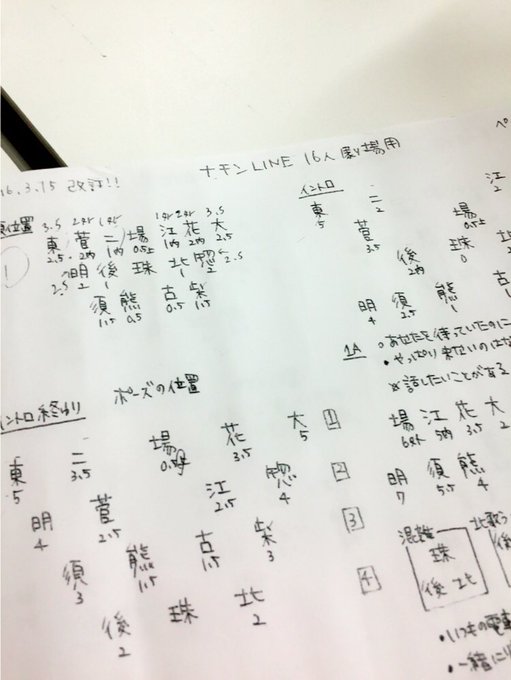 16.3.15 改訂!!
ナギイチLINE 16人劇場用
イントロ
位置 3.5
東 菅 二 場 江 花 大
2.5 2内 1内 0.5上 1内 2内 2.5
明 後 珠 北 惣
2.5 2 1 1 2 2.5
須 熊 古 柴
1.5 0.5 0.5 1.5
東 二 江
5 2 2
菅 場
3.5 0.5上
後 珠 北
2内 0
明 須 熊 古
4 2.5 1 1
1A
・あなたを待っていたのに
・やっぱり来ないのは
※話したいことがある
イントロ終わり
ポーズの位置
東 二 場 花 大 1
5 3.5 3.5 5
明 菅 江 惣 2
4 2.5 2.5 4
須 熊 古 柴 3
3 1.5 1.5 3
後 珠 北 4
2 2
場 江 花 大
3.5 2
明 須 熊
7 5.5 4
混雑
珠
後 北
北歌う
後
・いつもの電車
・一緒に